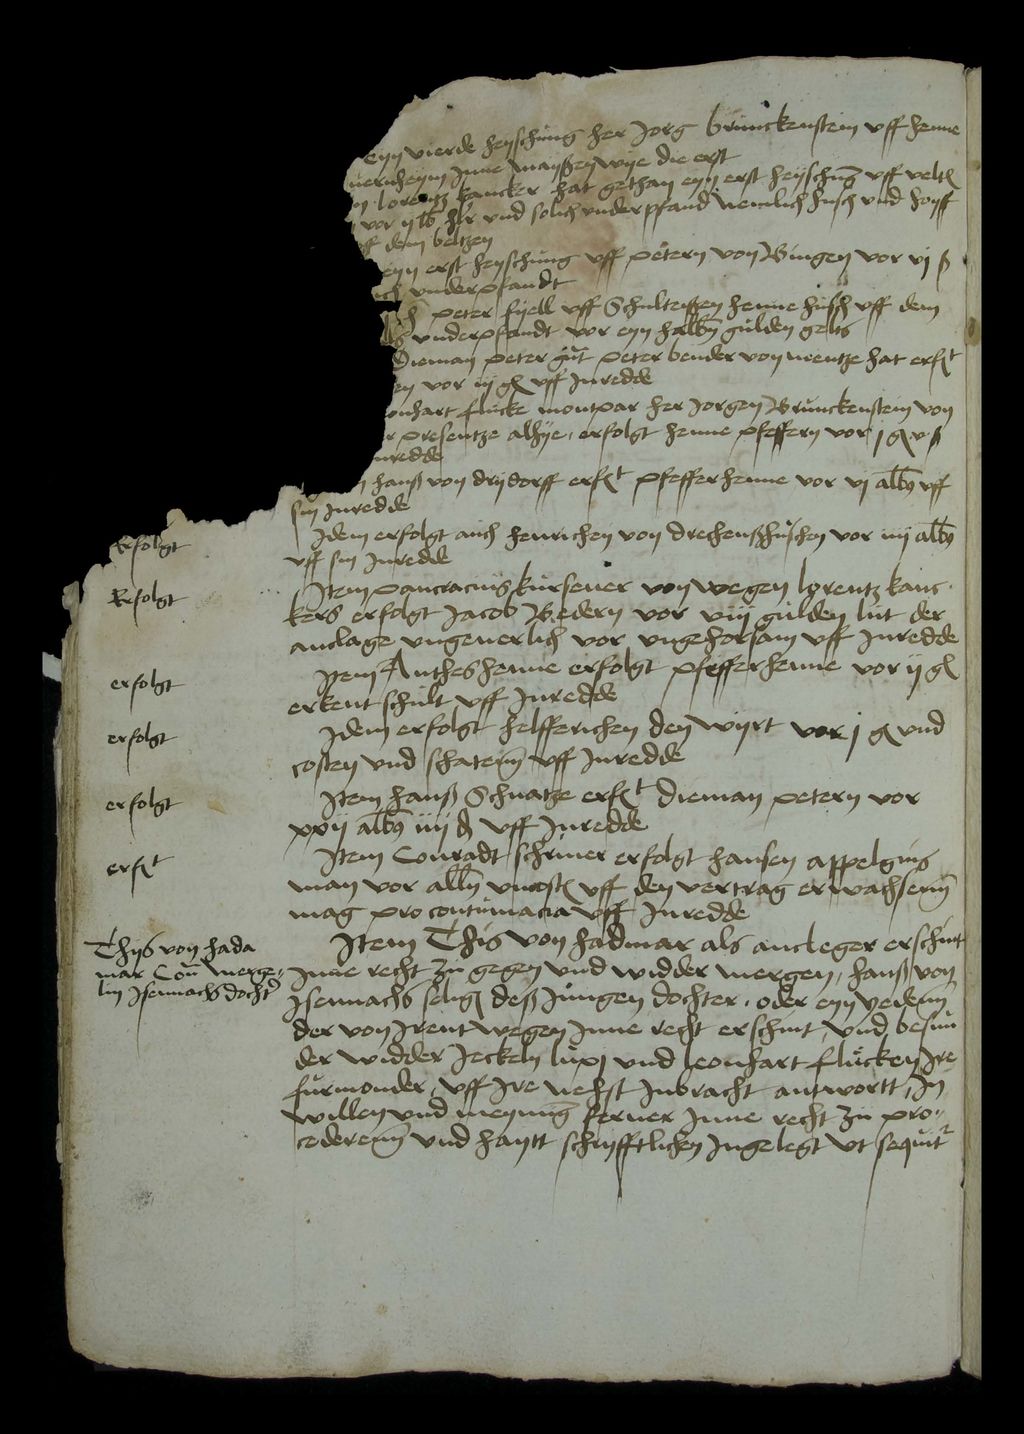 eyn vierde heyschung her Jorg Brunckenstein uff henne
Jnne mayßen wye die erst
lorentz kancker hat gethan eyn erst heyschung uff velt
vor ij lb hlr und solich underpfand nemlich husch und hoyff
uff dem beltzen
eyn erst heyschung uff petern von Bingen vor vj ß
ich underpfandt
peter fyell uff Schulteyßen henne husch uff dem
underpfandt vor eyn halbn gulden gelts
Dieman peter gut peter bender von mentze hat erft
en vor iij gl uff Jnredde
onhart flucke montpar her Jorgen Brunckenstein von
r presentze alhye, erfolgt henne pfeffern vor j gl v ß
nredde
hans von drydorff erft pfefferhenne vor vj alb uff
sin Jnredde
Erfolgt Jdem erfolgt auch henrichen von drechenßhuschen vor iiij alb
uff sin Jnredde
Erfolgt Item pancracius kursener von wegen lorentz kanc-
kers erfolgt Jacob Bedern vor viij gulden lut der
anclage ungeuerlich vor ungehorsam uff Jnredde
erfolgt Item Anthes henne erfolgt pfefferhenne vor ij gl
erkent schult uff Jnredde
erfolgt Jdem erfolgt helfferichen den wyrt vor j gl und
costen und schatenn uff Jnredde
erfolgt Item hans Schnatze erft dieman petern vor
xxij alb iiij d uff Jnredde
erft Item Conradt schriner erfolgt hansen appelgins
man vor allen uncost uff den vertrag erwachsenn
mag pro contumacia uff Jnredde
Thys von hada
mar Con merge-
lin Jsennachs docht
Item This von hadmar als ancleger erschint
Jnne recht zu gegen und widder mergen, hans von
Jsennachs seligen deß Jungen dochter, oder eyn yedenn
der von Jrent wegen Jnne recht erschint, und besun
der widder Jeckeln luxj und leonhart flucken Jre
furmonder, uff Jre nehst Jnbracht antwortt, Jn
willen und meynung ferner Jnne recht zu pro-
cederenn und haytt schryfftlichen Jngelegt ut sequit